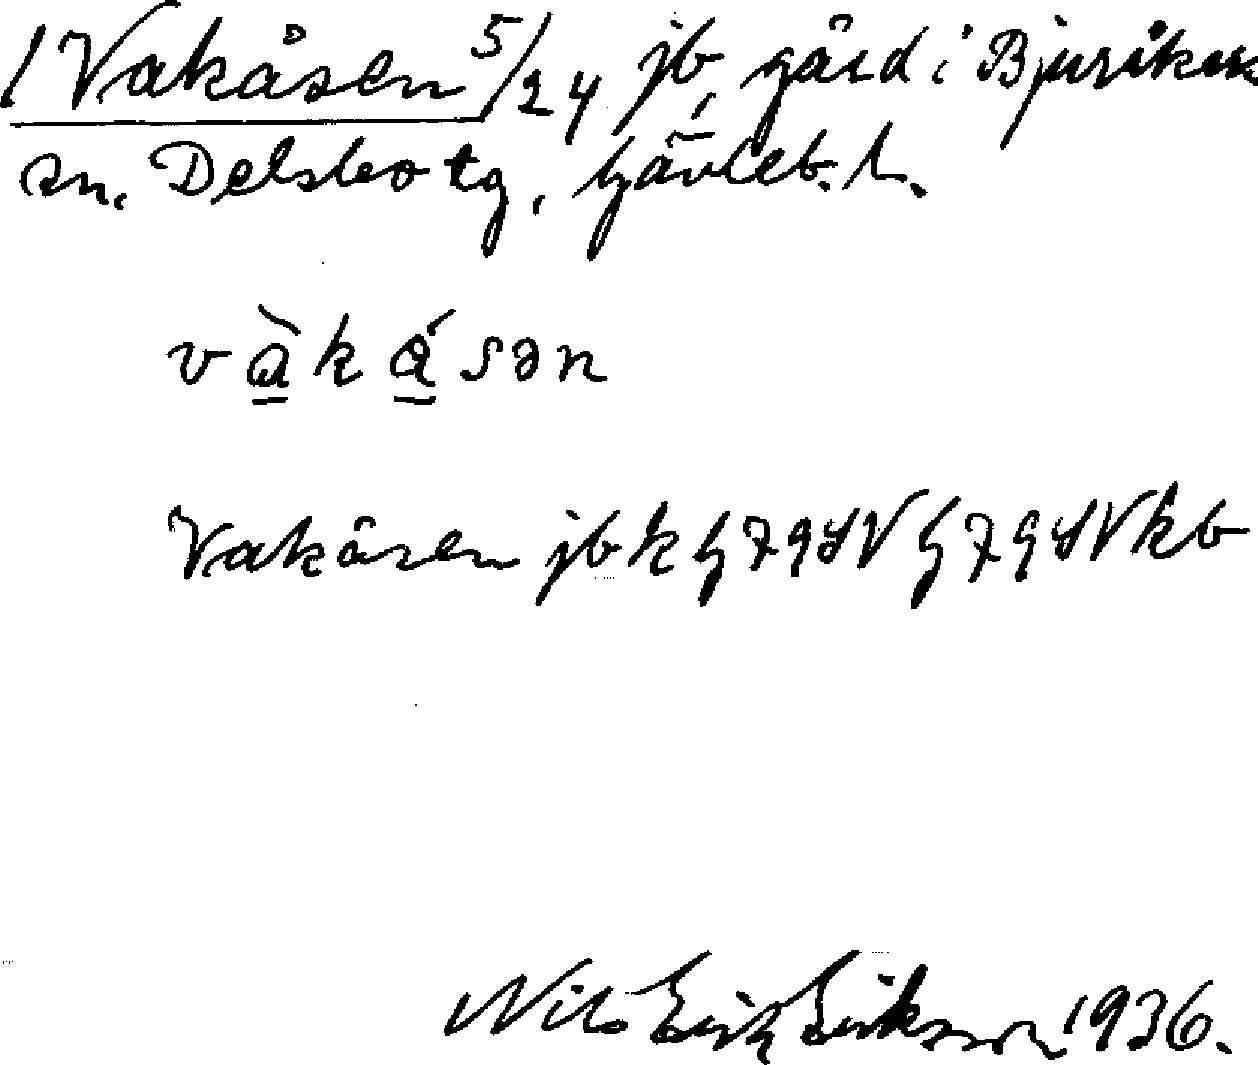 1 Vakåsen 5/24 jb, gård i Bjuråkers
sn. Delsbo tg, Gävleb. l.
vàkásən
Vakåsen jbk G 7 9 4 V G 7 9 4 V kb
Nils Erik Eriksson 1936.